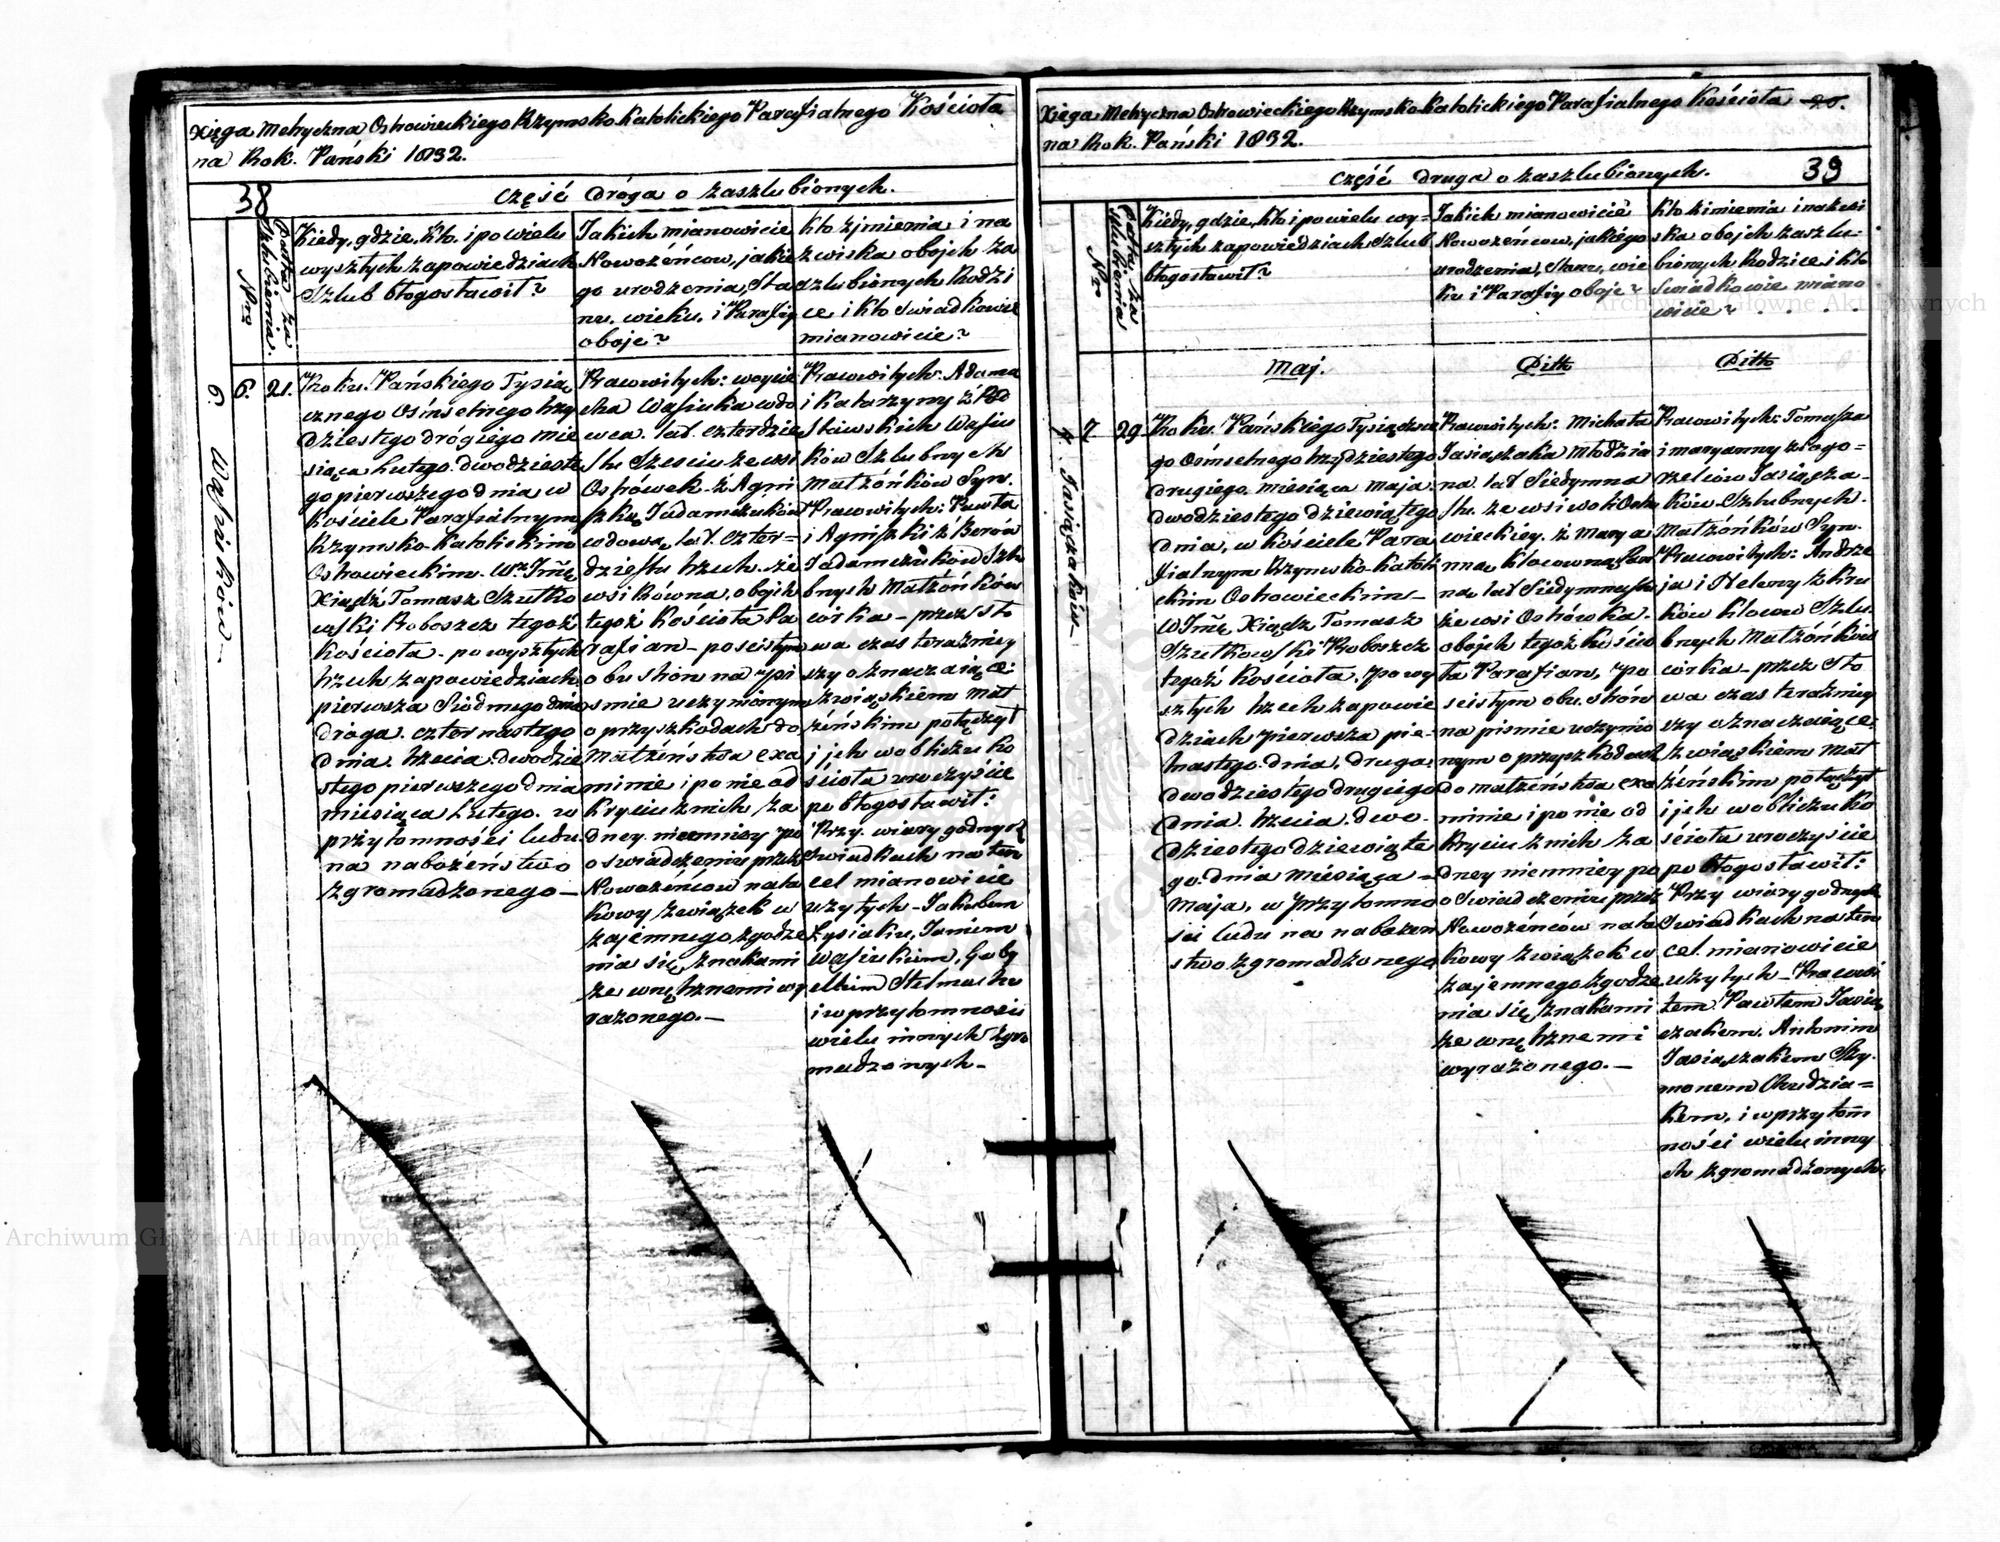 Xięga Metryczna Ostrowieckiego Rzymsko-Katolickiego Parafialnego Kościoła
na Rok. Pański 1832.
38
Część dróga o zaszlubionych.
Nro
Data za
szlubienia.
Kiedy, gdzie, kto, i po wielu
wyszłych zapowiedziach
Szlub błogosławił?
Jakich mianowicie
Nowożeńcow, jakie
go urodzenia, Sta
nu, wieku, i Parafiy
oboje?
Kto z jmienia i na
zwiska obojch za
szlubionych Rodzi
ce i kto Swiadkowie
mianowicie?
6. Wasiuków
6.
21.
Roku Pańskiego Tysią
cznego Osmsetnego trzy
dziestego drógiego mie
siąca Lutego dwodzieste
go pierwszego dnia w
Kościele Parafialnym
Rzymsko-Katolickim
Ostrowieckim. Wn Jmć
Xiądz Tomasz Szutko
wski Proboszcz tegoż
Kościoła - po wyszłych
trzech zapowiedziach
pierwsza Siódmego dnia
dróga czternastego
dnia, trzecia dwodzie
stego pierwszego dnia
miesiąca Lutego. w
przytomności ludu
na nabożeństwo
zgromadzonego—
Pracowitych: woycie
cha Wasiuka wdo
wca. lat. czterdzie
stu Sześciu ze wsi
Ostrówek z Agni
szką Jadamczuków
wdową, lat. czter-
dziestu trzech ze
wsi Równa, obojch
tegoż Kościoła Pa
rafian - po scisłym
obu stron na pi
smie uczynionym
o przyszkodach do
Małżeństwa exa
minie i po nie od
kryciu z nich ża
dney niemniey po
oswiadczeniu przez
Nowożeńców na ta
kowy związek w
zajemnego zgodze
nia się, znakami
ze wnętrznemi wy
rażonego.—
Pracowitych: Adama
i Katarzyny z Pod
stawskich Wasiu
ków Szlubnych
Małżónków Syn.
Pracowitych: Pawła
i Agniszki z
Jadamczuków Szlu
bnych Małżónków
córka - przez sło
wa czas teraźniey
szy oznaczaiące
związkiem mał
żeńskim połączył
i jch w obliczu ko
scioła uroczyście
pobłogosławił:
Przy wiary godnych
Swiadkach na ten
cel mianowicie
użytych - Jakubem
Łysiakiem, Janem
Wasiukiem, Gaby
elbim Stelmachu
i w przytomności
wielu innych zgro
madzonych—
Xięga Metryczna Ostrowieckiego Rzymsko-Katolickiego Parafialnego Kościoła
na Rok. Pański 1832.
Część druga o zaszlubionych.
39
Nro
Data za
szlubienia
Kiedy, gdzie, kto i po wielu wy=
szłych zapowiedziach Szlub
błogosławił?
Jakich mianowicie
Nowożeńcow, jakiego
urodzenia, Stanu, wie
ku i Parafiy oboje?
Kto z imienia i nazwi
ska obojch zaszlu-
bionych Rodzice i kto
Swiadkowie miano
wicie?
Maj.
Ditto
Ditto
7. Jasiączaków—
7
29
Roku Pańskiego Tysiączne
go Osmsetnego trzydziestego
drugiego miesiąca maja
dwodziestego dziewiątego
dnia, w Kościele Para
fialnym Rzymsko-Katoli
ckim Ostrowieckim—
W Jmć Xiądz Tomasz
Szutkowski Proboszcz
tegoż Kościoła, po wy
szłych trzech zapowie
dziach pierwsza pie-
tnastego dnia, druga
dwodziestego drugiego
dnia. trzecia. dwo-
dziestego dziewiąte
go dnia miesiąca—
maja, w przytomno
sci ludu na nabożeń
stwo zgromadzonego
Pracowitych: Michała
Jasiączaka młodzia
na lat Siedymna
stu. ze wsi woli Ostro
wieckiey. z Marya
nną Kłocowną Pan
na lat Siedymnastu
ze wsi Ostrówka.
obojch tegoż Koscio
ła Parafian, po
scisłym obu strón
na pismie uczynio
nym o przyszkodach
do małżeństwa exa
minie i po nie od
kryciu z nich ża
dney niemniey po
oswiadczeniu przez
Nowożeńców na ta
kowy związek w
zajemnego zgodze
nia się, znakami
ze wnętrznemi
wyrażonego.—
Pracowitych: Tomasza
i maryanny z Jago=
rzelców Jasiącza-
ków Szlubnych
Małżónków Syn.
Pracowitych: Andrze
ja i Heleny z Kru
ków Kłocow Szlu
bnych Małżónków
córka - przez sło
wa czas teraźniey
szy oznaczaiące
związkiem mał
żeńskim połączył
i jch w obliczu ko
ścioła uroczyscie
pobłogosławił:
Przy wiary godnych
Swiadkach na ten
cel mianowicie
użytych - Pracowi
tem Pawłem Jasią
czakem, Antonim
Jasiączakem Szy-
monem Chudzia=
kem, i w przytom
ności wielu inny
ch zgromadzonych.
Archiwum Główne Akt Dawnych
Archiwum Główne Akt Dawnych